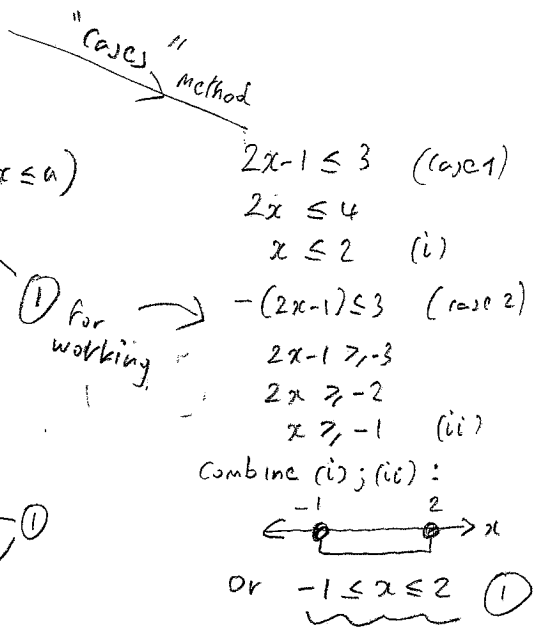 "Cases" Method
x ≤ a)
2x-1 ≤ 3 (Case 1)
2x ≤ 4
x ≤ 2 (i)
① for working
-(2x-1) ≤ 3 (case 2)
2x-1 ≥ -3
2x ≥ -2
x ≥ -1 (ii)
Combine (i) ; (ii) :
-1 2
x
①
Or -1 ≤ x ≤ 2 ①